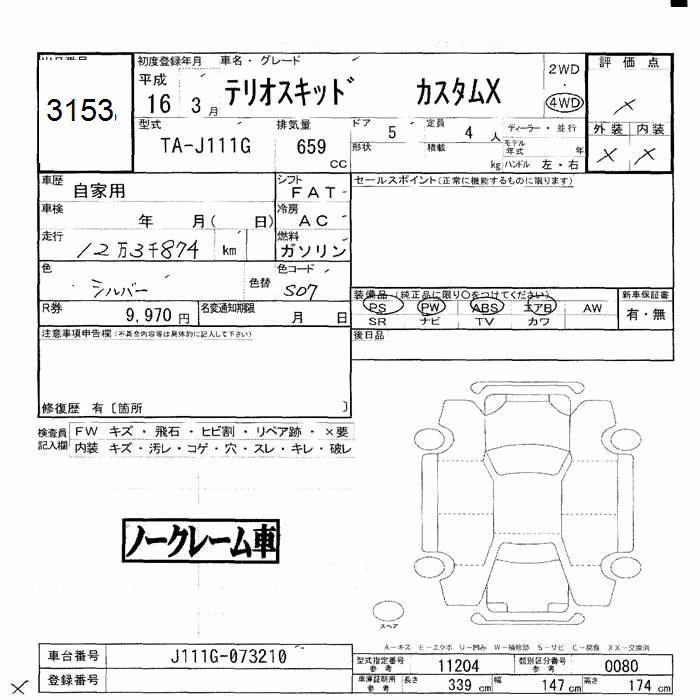 3153
初度登録年月 車名・グレード
平成 16 3月
テリオスキッド カスタムX
2WD
・
4WD
評価点
×
外装 内装
× ×
型式
TA-J111G
排気量
659 CC
ドア 5 定員 4 人
形状 積載 kg
ディーラー・並行
モデル年式 年
ハンドル 左・右
車歴
自家用
シフト
FAT
車検
年 月( 日)
冷房
AC
走行
12万3千874 km
燃料
ガソリン
色
シルバー
色替
色コード
S07
R券
9,970円
名変通知期限
月 日
セールスポイント(正常に機能するものに限ります)
装備品(純正品に限り○をつけてください)
PS PW ABS エアB AW
SR ナビ TV カワ
新車保証書
有・無
後日品
注意事項申告欄(不具合内容等は具体的に記入して下さい)
修復歴 有〔箇所 〕
検査員記入欄
FW キズ・飛石・ヒビ割・リペア跡・×要
内装 キズ・汚レ・コゲ・穴・スレ・キレ・破レ
ノークレーム車
スペア
A-キズ E-エクボ U-凹み W-補修跡 S-サビ C-腐食 XX-交換済
車台番号 J111G-073210
登録番号
型式指定番号 参考 11204 類別区分番号 参考 0080
車庫証明用 参考 長さ 339 cm 幅 147 cm 高さ 174 cm
×